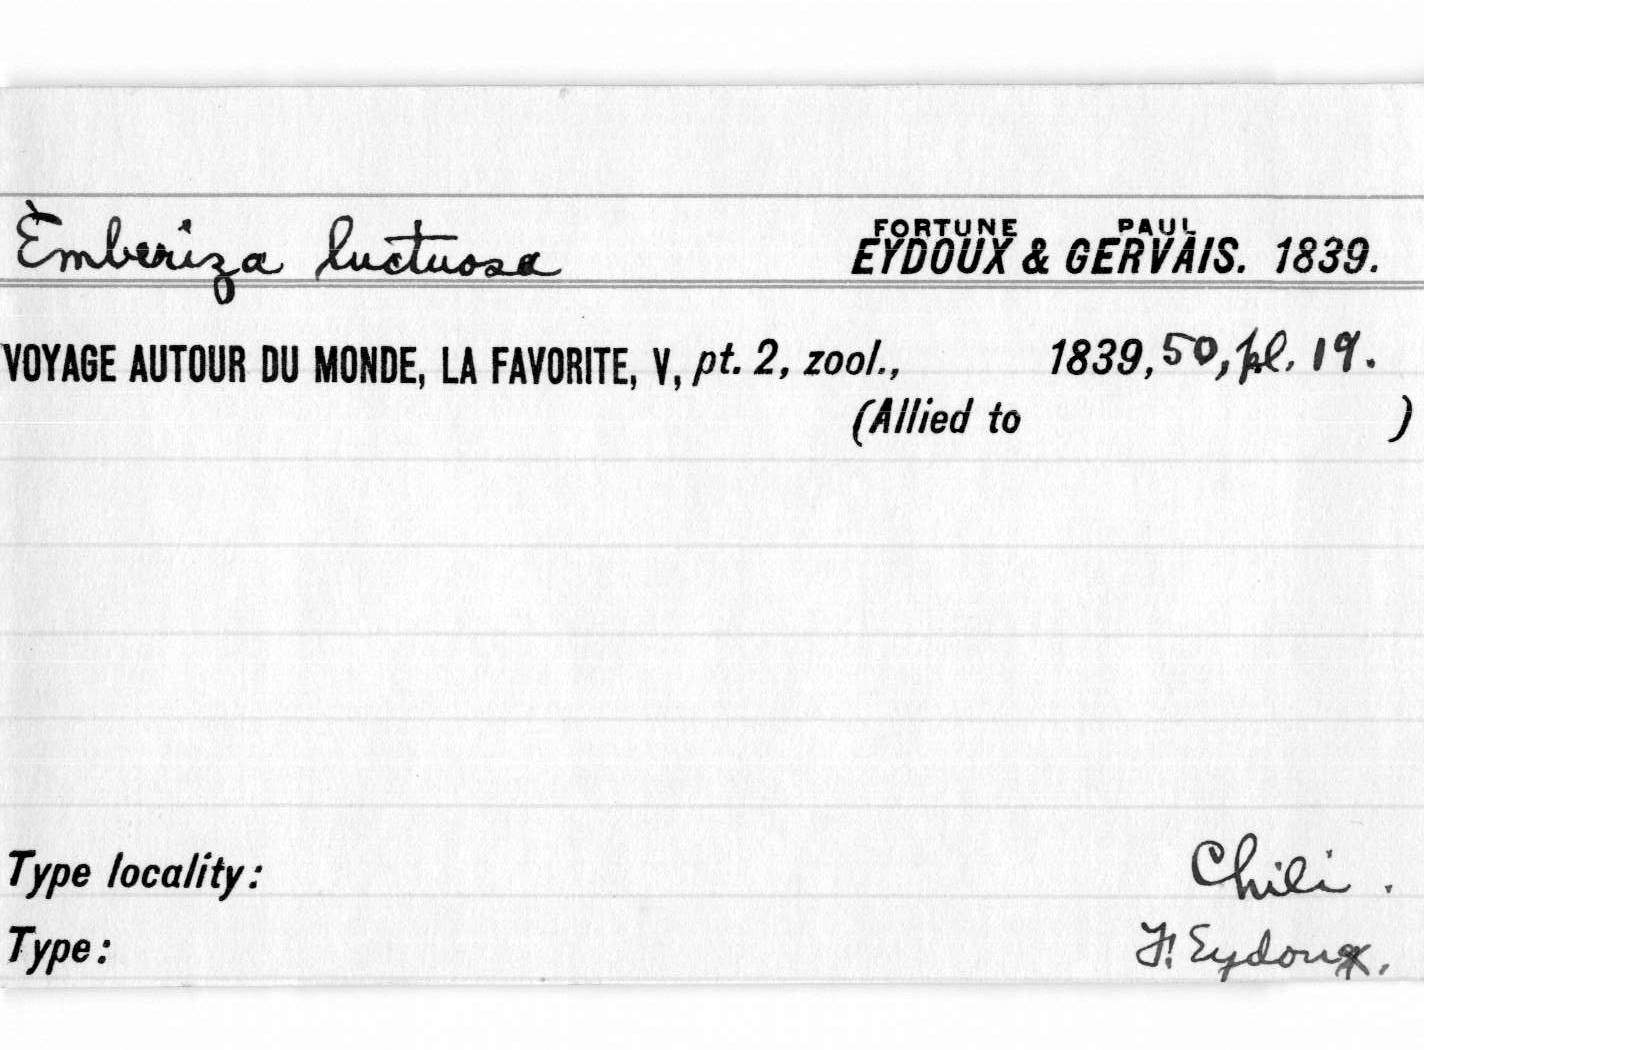 Emberiza luctuosa FORTUNE PAUL
EYDOUX & GERVAIS. 1839.
VOYAGE AUTOUR DU MONDE, LA FAVORITE, V, pt. 2, zool., 1839, 50, pl. 19.
(Allied to )
Type locality: Chili.
Type: F. Eydoux.